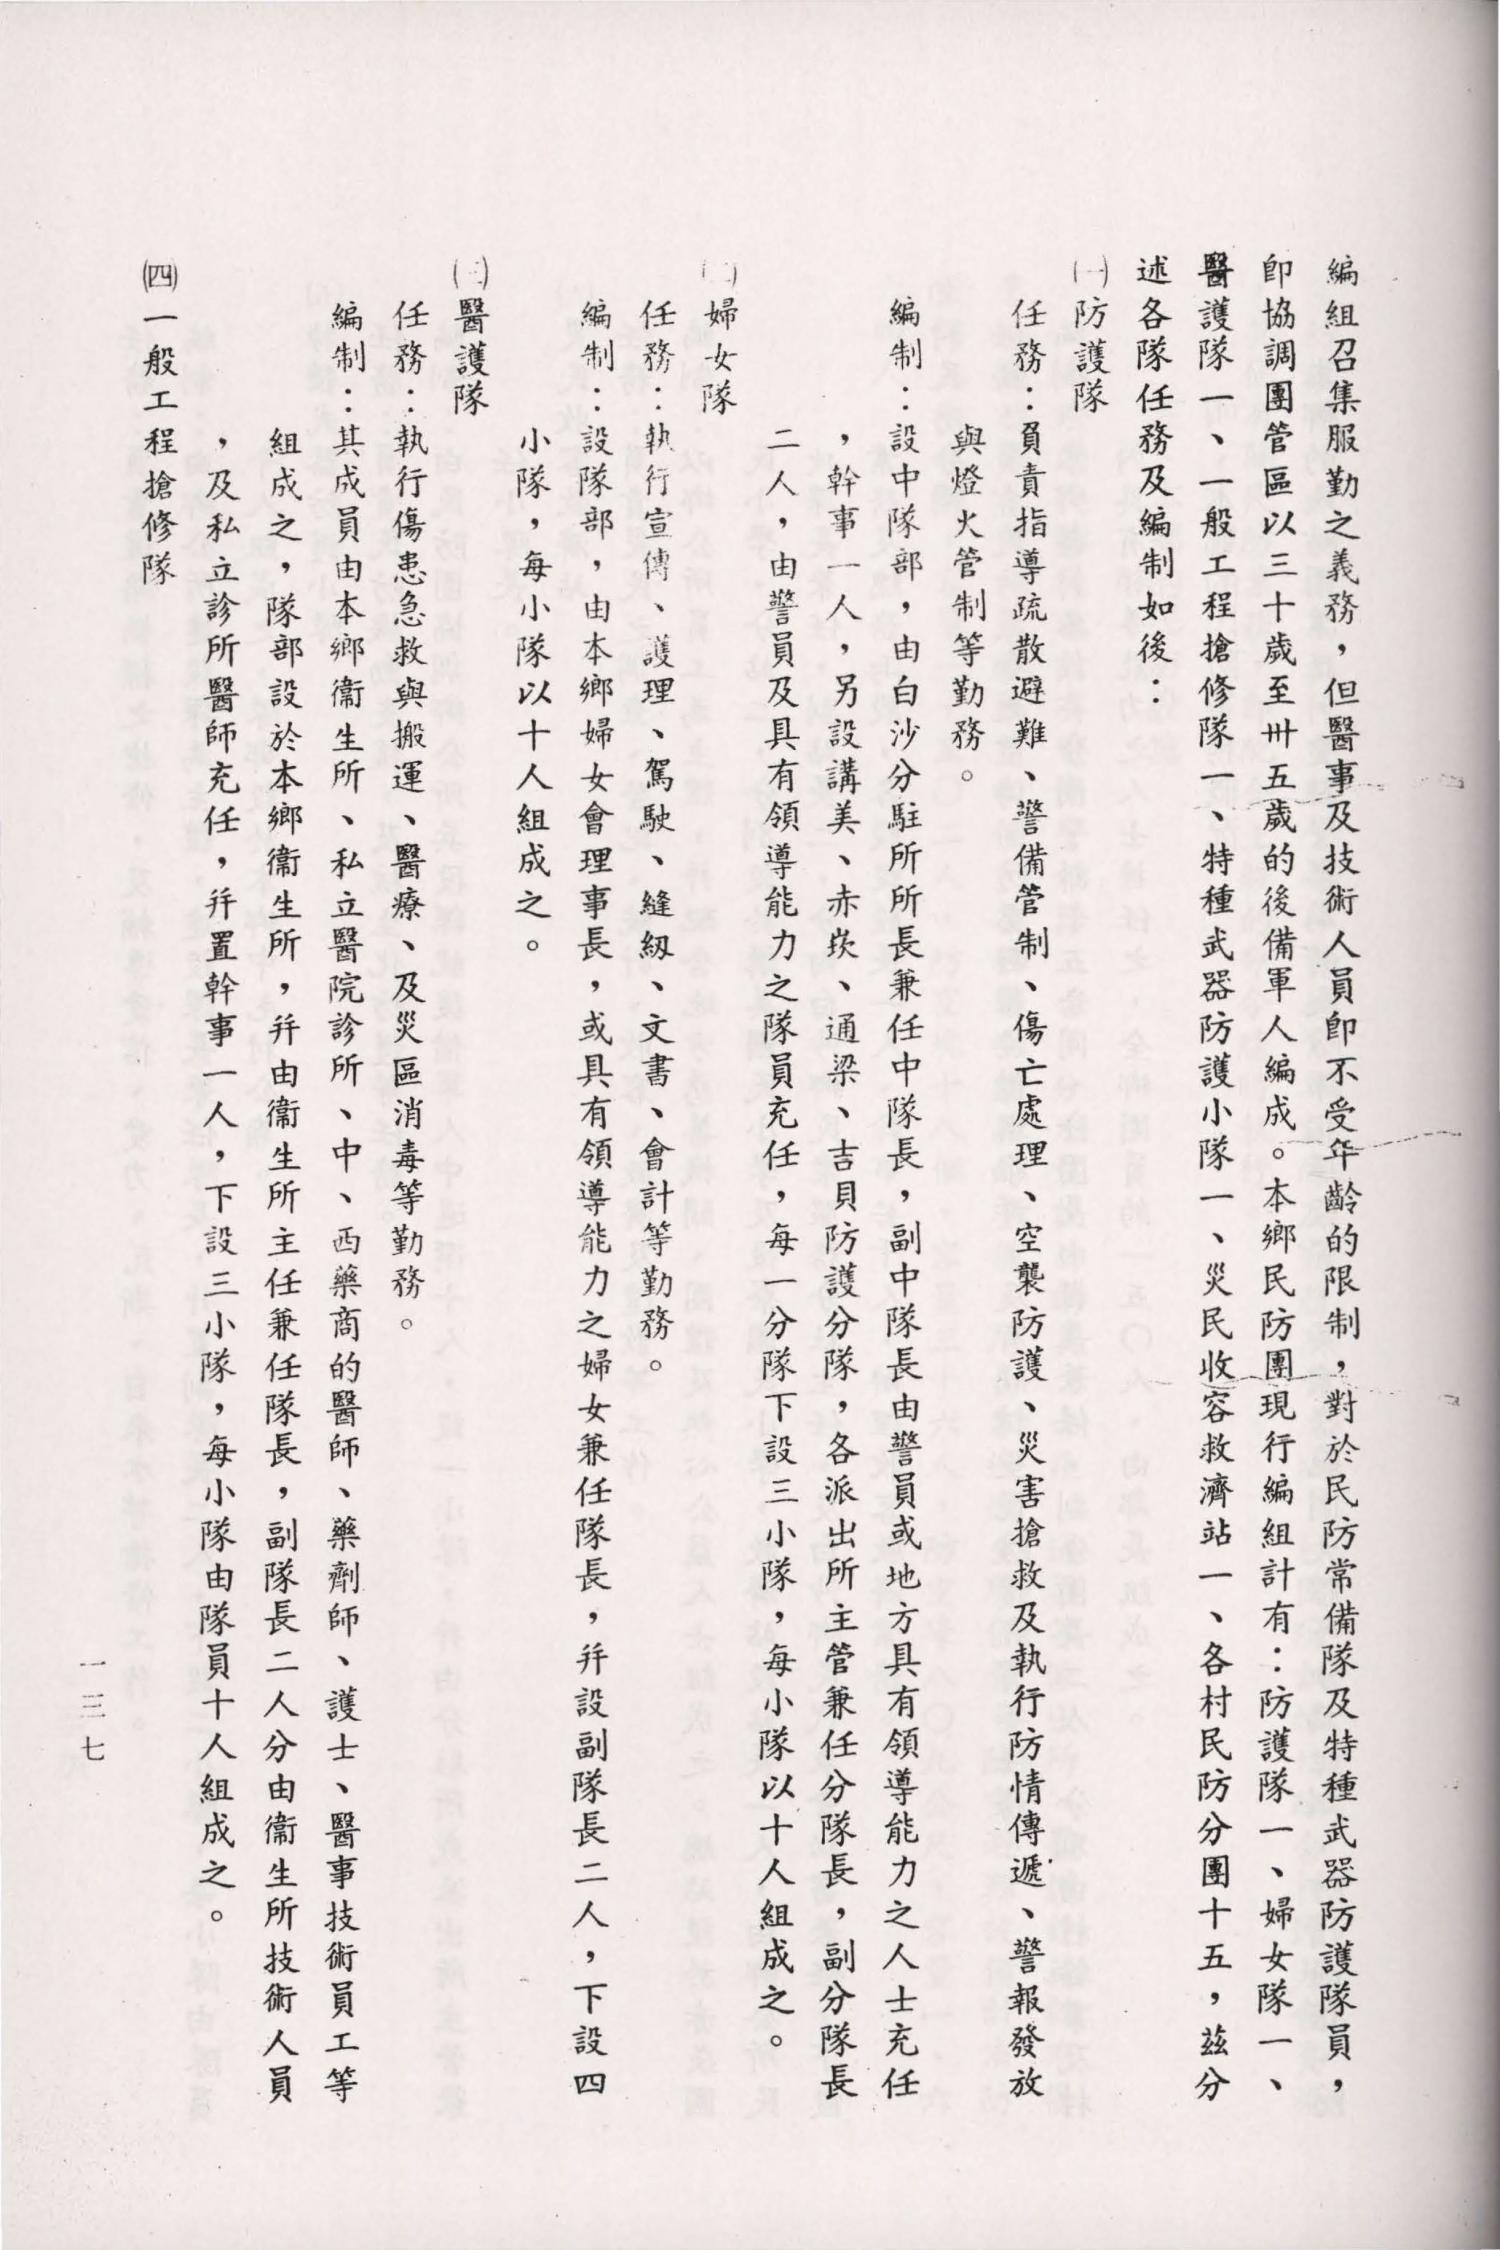 編組召集服勤之義務，但醫事及技術人員卽不受年齡的限制，對於民防常備隊及特種武器防護隊員，
卽協調團管區以三十歲至卅五歲的後備軍人編成。本鄉民防團現行編組計有：防護隊一、婦女隊一、
醫護隊一、一般工程搶修隊一、特種武器防護小隊一、災民收容救濟站一、各村民防分團十五，茲分
述各隊任務及編制如後：
㈠防護隊
任務：負責指導疏散避難、警備管制、傷亡處理、空襲防護、災害搶救及執行防情傳遞、警報發放
與燈火管制等勤務。
編制：設中隊部，由白沙分駐所所長兼任中隊長，副中隊長由警員或地方具有領導能力之人士充任
，幹事一人，另設講美、赤崁、通梁、吉貝防護分隊，各派出所主管兼任分隊長，副分隊長
二人，由警員及具有領導能力之隊員充任，每一分隊下設三小隊，每小隊以十人組成之。
㈡婦女隊
任務：執行宣傳、護理、駕駛、縫紉、文書、會計等勤務。
編制：設隊部，由本鄉婦女會理事長，或具有領導能力之婦女兼任隊長，幷設副隊長二人，下設四
小隊，每小隊以十人組成之。
㈢醫護隊
任務：執行傷患急救與搬運、醫療、及災區消毒等勤務。
編制：其成員由本鄉衞生所、私立醫院診所、中、西藥商的醫師、藥劑師、護士、醫事技術員工等
組成之，隊部設於本鄉衞生所，幷由衞生所主任兼任隊長，副隊長二人分由衞生所技術人員
，及私立診所醫師充任，幷置幹事一人，下設三小隊，每小隊由隊員十人組成之。
㈣一般工程搶修隊
一三七